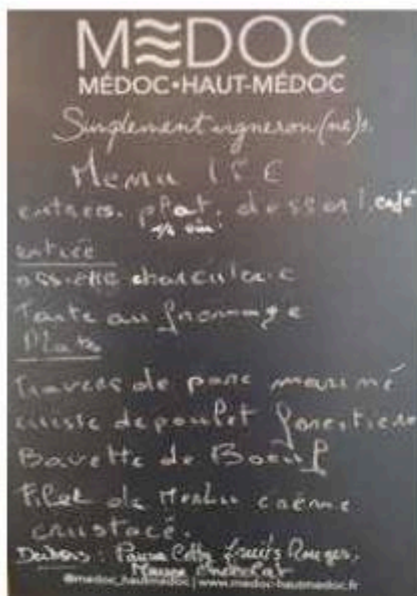 MEDOC
MÉDOC•HAUT-MÉDOC
Simplement vigneron(ne)s.
Menu 15 €
entrées. plat. dessert. café
1/4 vin
entrée
assiette charcuterie
Tarte au fromage
Plats
Travers de porc mariné
cuisse de poulet forestière
Bavette de Boeuf
Filet de Merlu crème
crustacé.
Desserts : Panna Cotta fruits Rouges.
Mousse Chocolat
@medoc_hautmedoc | www.medoc-hautmedoc.fr